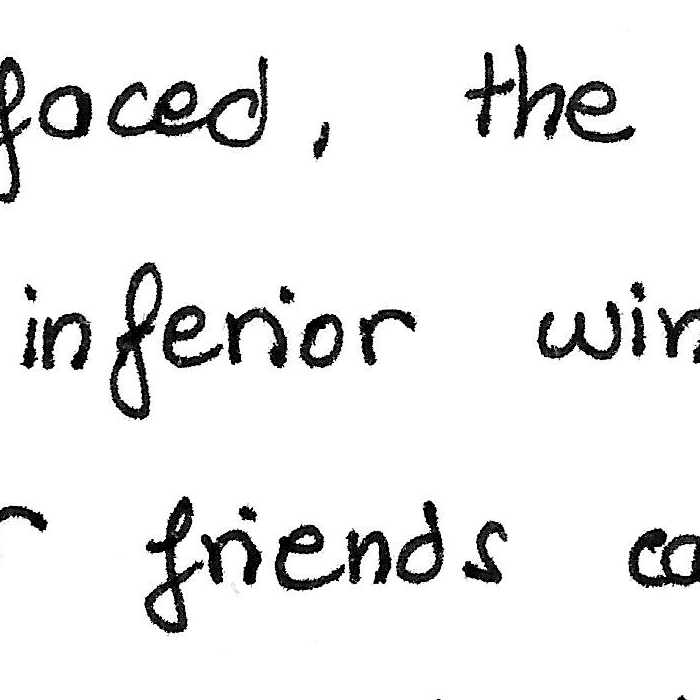 faced, the
inferior win
r friends co